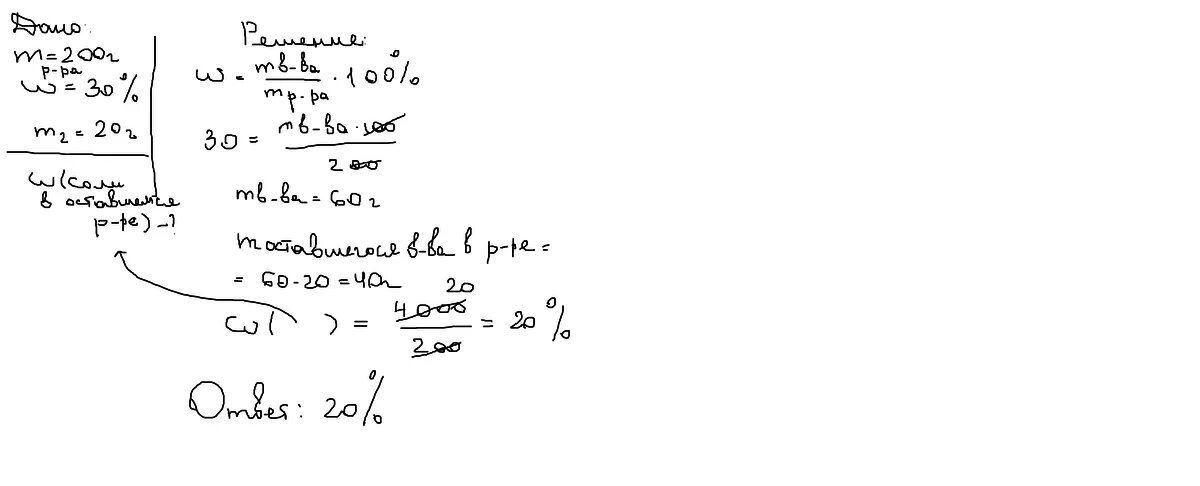 Дано:
m = 200г
р-ра
ω = 30%
m₂ = 20г
ω(соли
в оставшемся
р-ре) -?
Решение:
ω = mв-ва / mр-ра · 100%
30 = mв-ва · 100 / 200
mв-ва = 60г
mоставшегося в-ва в р-ре =
= 60-20 = 40г
20
ω( ) = 4000 / 200 = 20%
Ответ: 20%